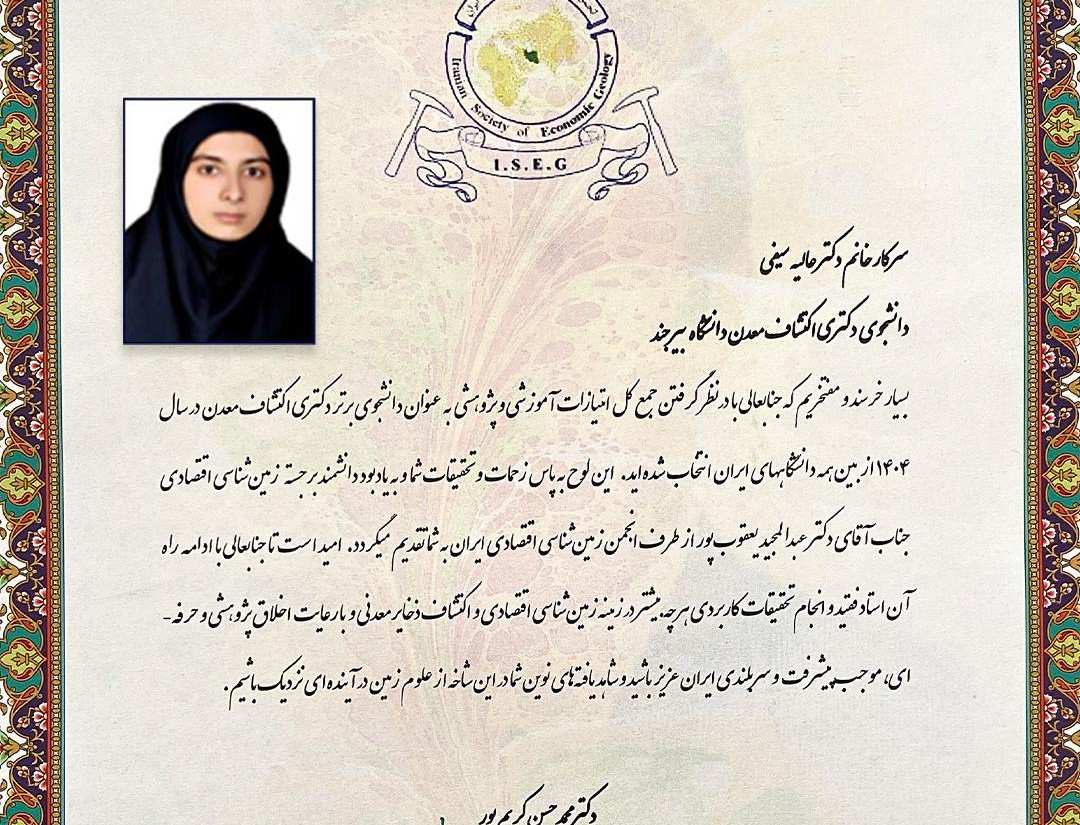 Iranian Society of Economic Geology
I.S.E.G
سرکار خانم دکتر عالیه سیفی
دانشجوی دکتری اکتشاف معدن دانشگاه بیرجند
بسیار خرسند و مفتخریم که جنابعالی با در نظر گرفتن جمع کل امتیازات آموزشی و پژوهشی به عنوان دانشجوی برتر دکتری اکتشاف معدن در سال
۱۴۰۴ از بین همه دانشگاههای ایران انتخاب شده اید. این لوح به پاس زحمات و تحقیقات شما و به یادبود دانشمند برجسته زمین شناسی اقتصادی
جناب آقای دکتر عبدالمجید یعقوب پور از طرف انجمن زمین شناسی اقتصادی ایران به شما تقدیم میگردد. امید است تا جنابعالی با ادامه راه
آن استاد فقید و انجام تحقیقات کاربردی هر چه بیشتر در زمینه زمین شناسی اقتصادی و اکتشاف ذخایر معدنی و با رعایت اخلاق پژوهشی و حرفه-
ای، موجب پیشرفت و سربلندی ایران عزیز باشید و شاهد یافته های نوین شما در این شاخه از علوم زمین در آینده ای نزدیک باشیم.
دکتر محمد حسن کریم پور